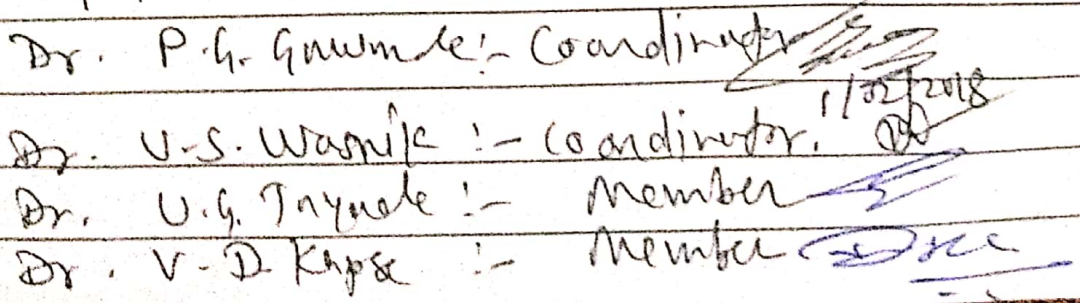 Dr. P.G. Gawande:- Coordinator
1/02/2018
Dr. V.S. Wasnik :- Coordinator.
Dr. U.G. :- Member
Dr. V.D. Kapse :- Member